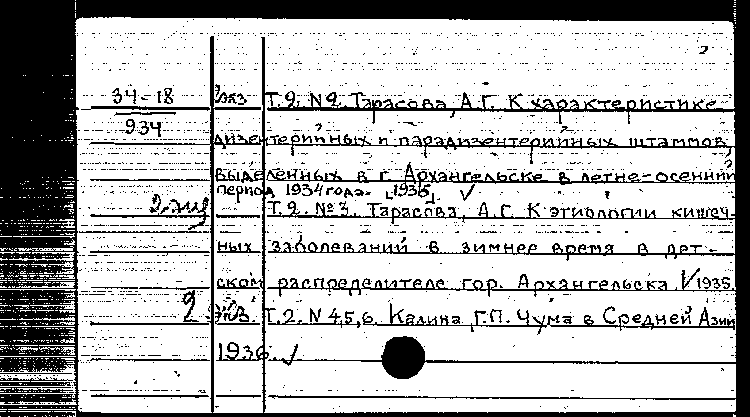 2
34-18 экз Т.2. №2. Тарасова, А.Г. К характеристике
934 дизентерийных и парадизентерийных штаммов,
выделенных в г Архангельске в летне-осенний
период 1934 года. [1935] ✓
2 экз Т.2. №3. Тарасова, А.Г. К этиологии кишеч-
ных заболеваний в зимнее время в дет-
ском распределителе гор. Архангельска. ✓1935.
2 экз. Т.2. N 4,5,6. Калина, Г.П. Чума в Средней Азии
1936. ✓